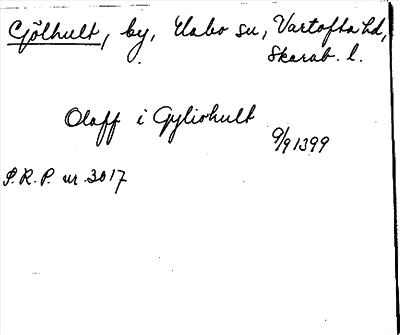 Gjölhult, by, Ulabo sn, Vartofta hd,
Skarab. l.
Olaff i Gyliohult
9/9 1399
S.R.P. nr. 3017